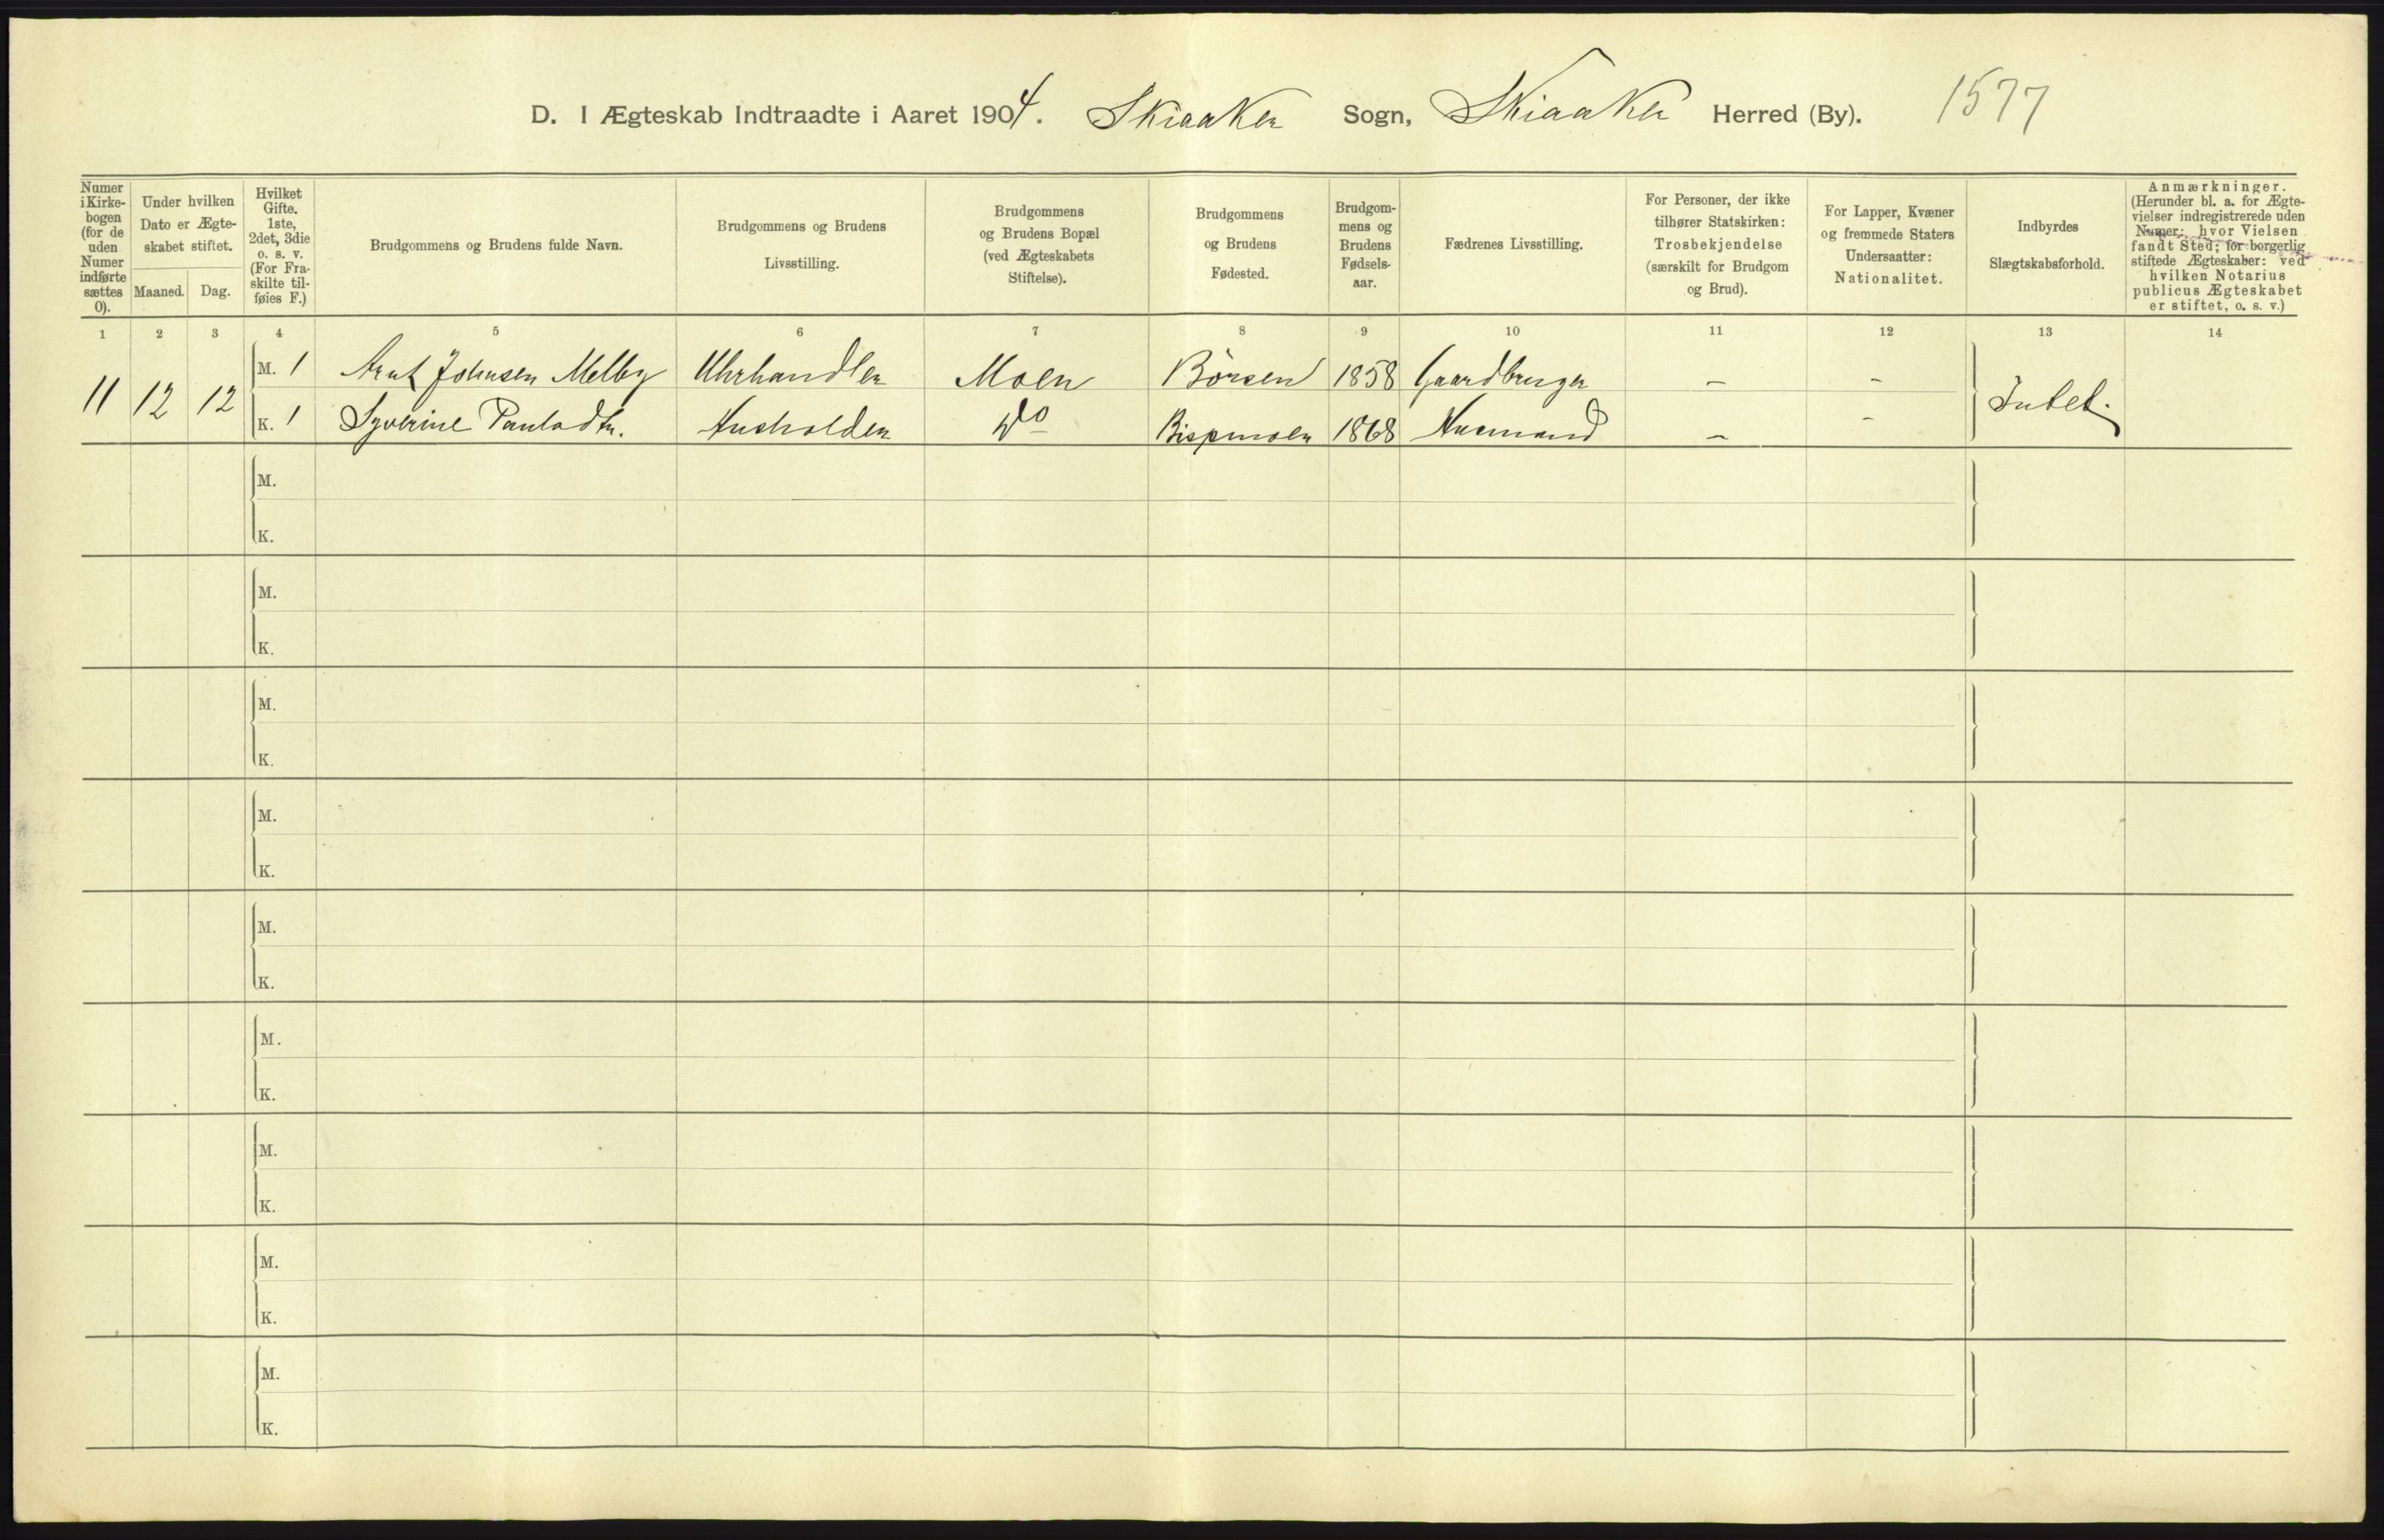 D. I Ægteskab Indtraadte i Aaret 1904. Skiaaker Sogn, Skiaaker Herred (By). 1577
Numer i Kirkebogen (for de uden Numer indførte sættes 0).
Under hvilken Dato er Ægteskabet stiftet.
Maaned.
Dag.
Hvilket Gifte. 1ste, 2det, 3die o. s. v. (For Fraskilte tilføies F.)
Brudgommens og Brudens fulde Navn.
Brudgommens og Brudens Livsstilling.
Brudgommens og Brudens Bopæl (ved Ægteskabets Stiftelse).
Brudgommens og Brudens Fødested.
Brudgommens og Brudens Fødselsaar.
Fædrenes Livsstilling.
For Personer, der ikke tilhører Statskirken: Trosbekjendelse (særskilt for Brudgom og Brud).
For Lapper, Kvæner og fremmede Staters Undersaatter: Nationalitet.
Indbyrdes Slægtskabsforhold.
Anmærkninger. (Herunder bl. a. for Ægtevielser indregistrerede uden Numer: hvor Vielsen fandt Sted; for borgerlig stiftede Ægteskaber: ved hvilken Notarius publicus Ægteskabet er stiftet, o. s. v.)
1 2 3 4 5 6 7 8 9 10 11 12 13 14
11 12 12 M. 1 Arnt Johnsen Melby Uhrhandler Moen Børsen 1858 Gaardbruger - - Intet.
K. 1 Syverine Paulsdtr. Husholder do Bispmoen 1868 Husmand - -
M.
K.
M.
K.
M.
K.
M.
K.
M.
K.
M.
K.
M.
K.
M.
K.
M.
K.